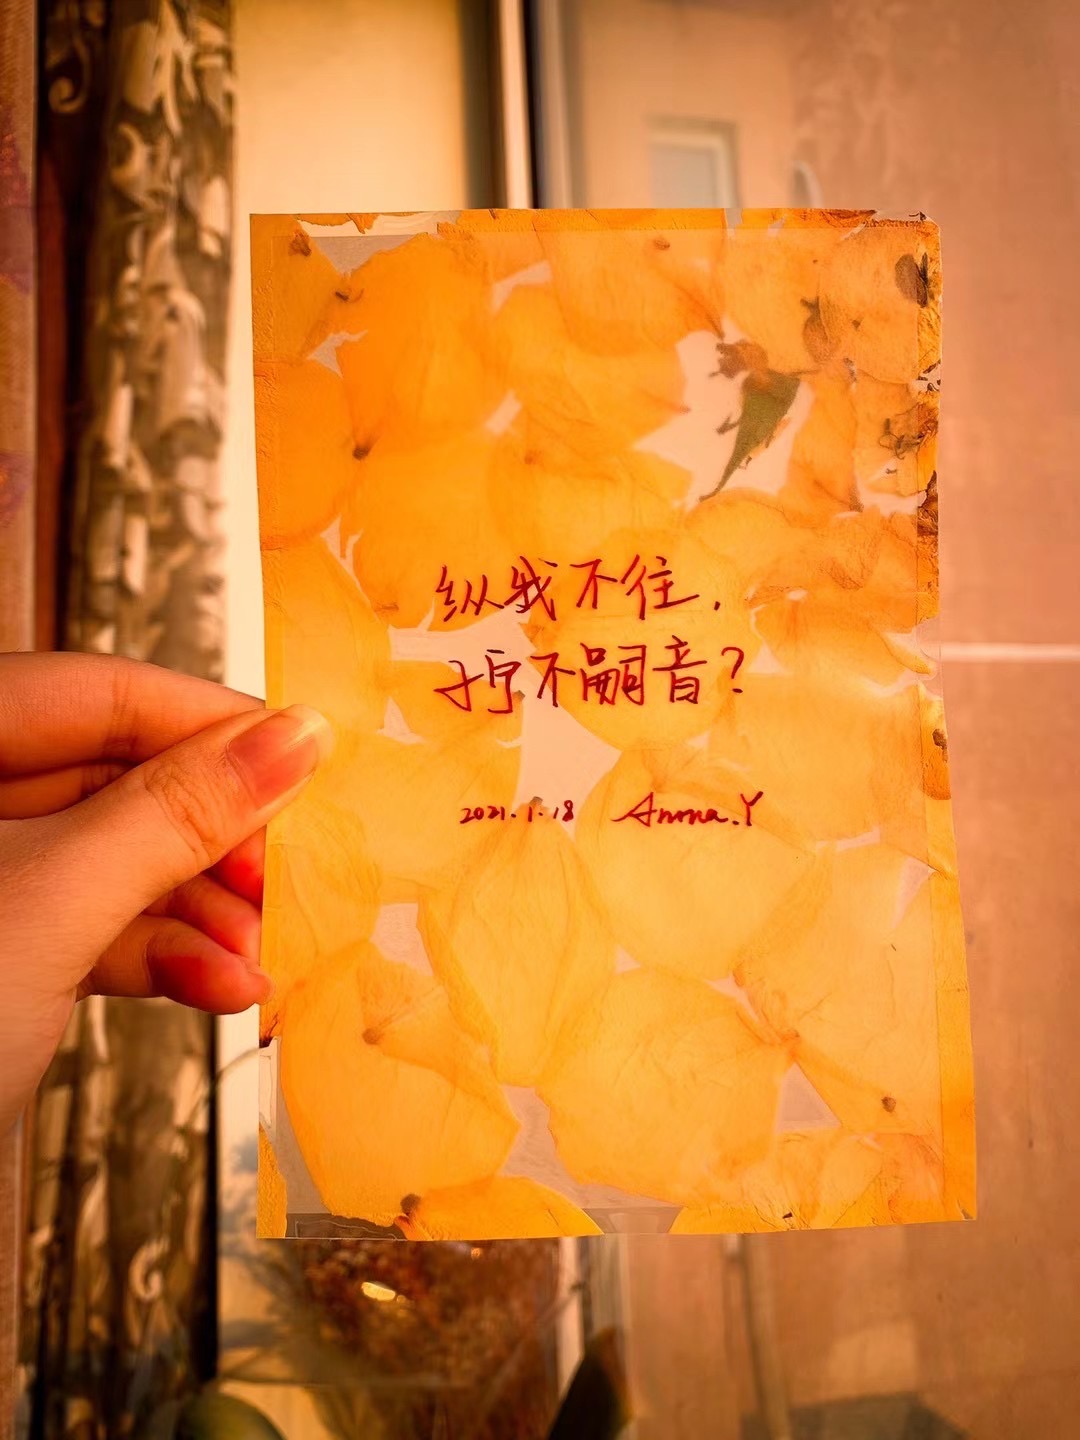 纵我不往,
子宁不嗣音?
2021.1.18 Anna.Y